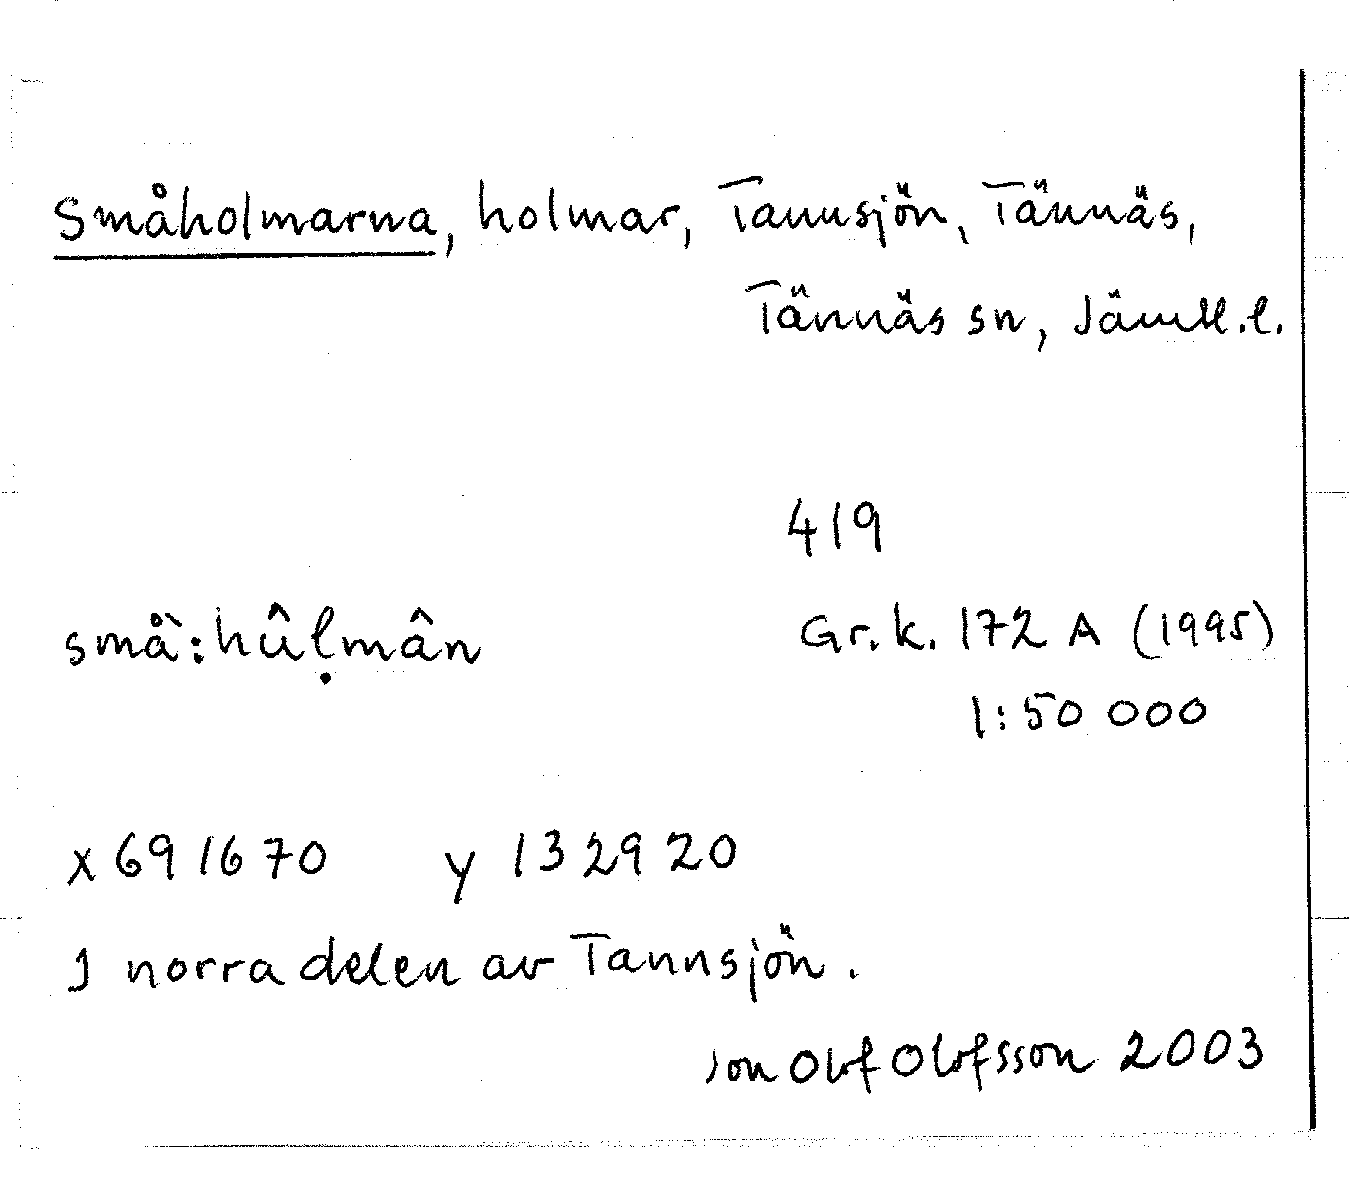 Småholmarna, holmar, Tannsjön, Tännäs,
Tännäs sn, Jämtl.l.
419
små̀:hûḷmân
Gr.k. 172 A (1995)
1:50 000
x 691670 y 132920
I norra delen av Tannsjön.
Jon Olof Olofsson 2003